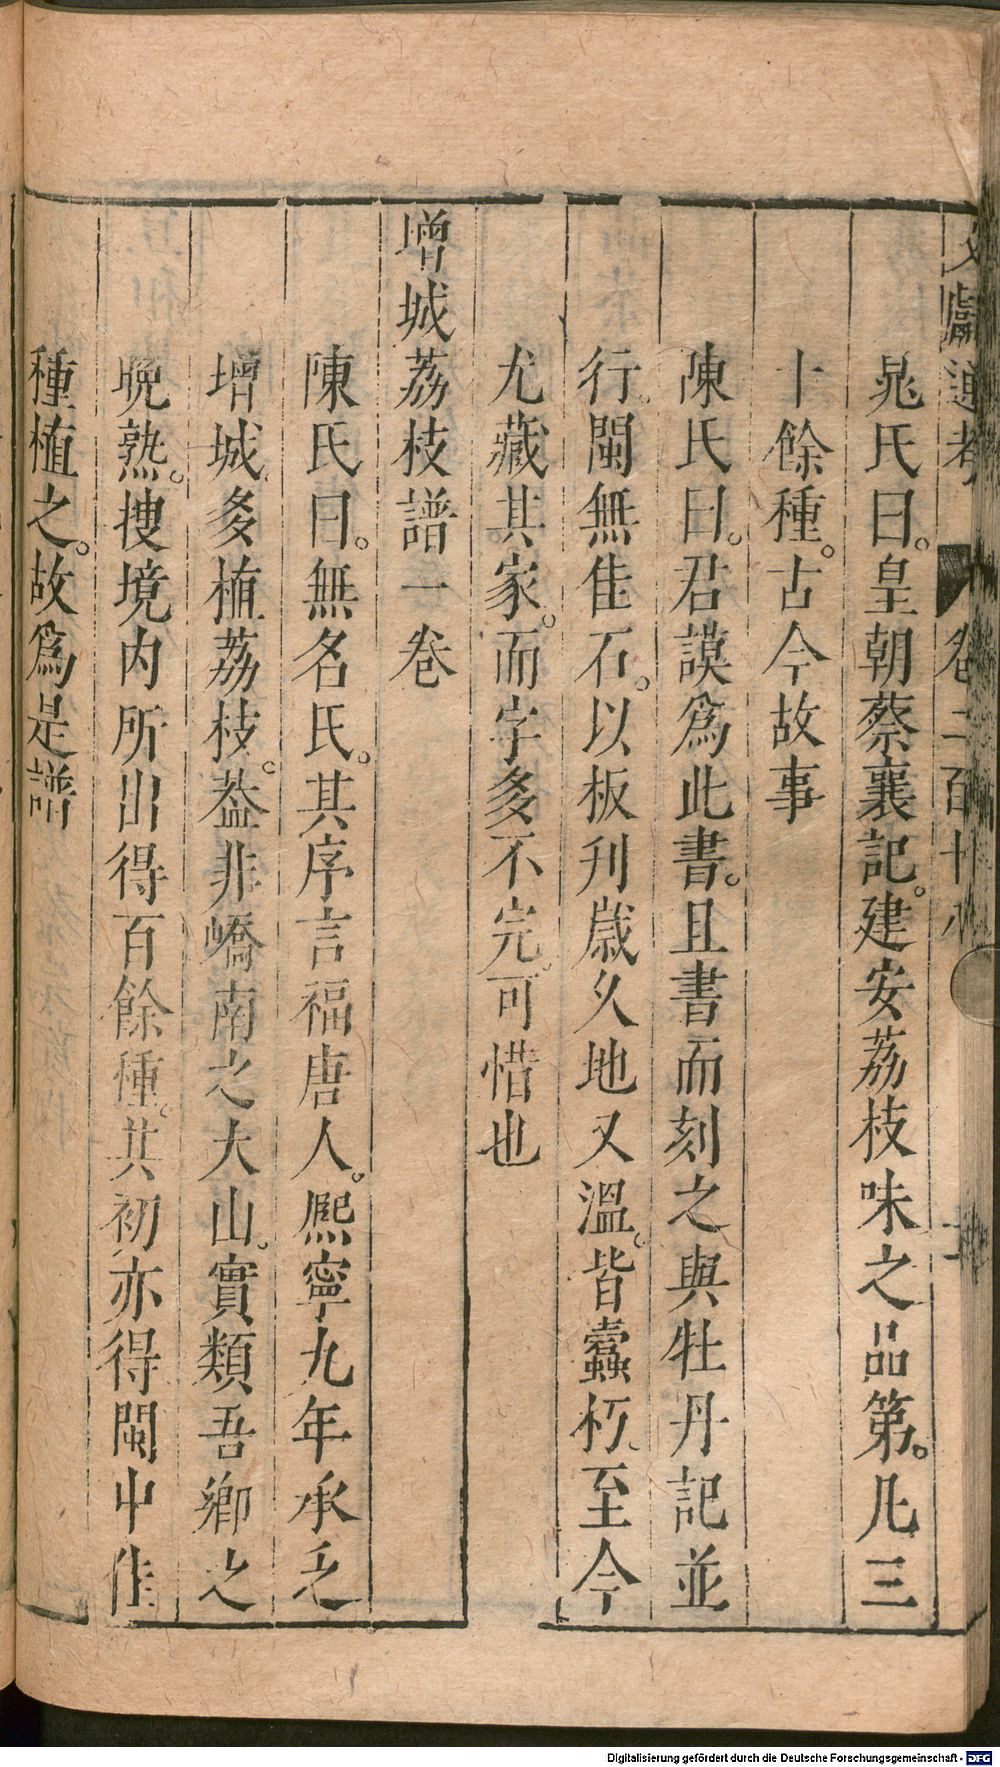 文獻通考 卷二百十八
晁氏曰。皇朝蔡襄記。建安荔枝味之品第。凡三
十餘種。古今故事
陳氏曰。君謨爲此書。且書而刻之與牡丹記並
行。閩無佳石。以板刋歲久地又溫。皆蠹朽。至今
尤藏其家。而字多不完。可惜也
增城荔枝譜一卷
陳氏曰。無名氏。其序言福唐人。熙寧九年承乏
增城。多植荔枝。葢非嶠南之大山。實類吾鄉之
晩熟。搜境内所出得百餘種。其初亦得閩中佳
種植之。故爲是譜
Digitalisierung gefördert durch die Deutsche Forschungsgemeinschaft - DFG